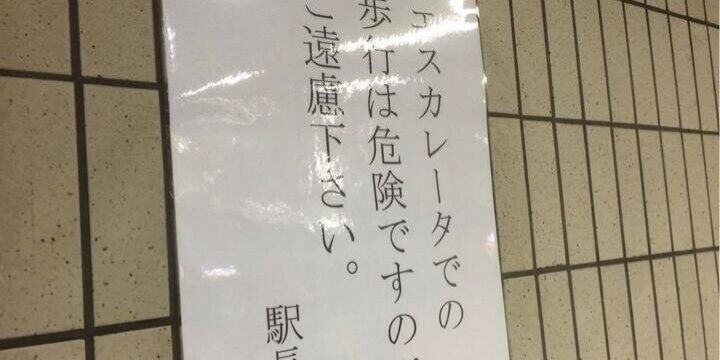 エスカレータでの
歩行は危険ですの
ご遠慮下さい。
駅長